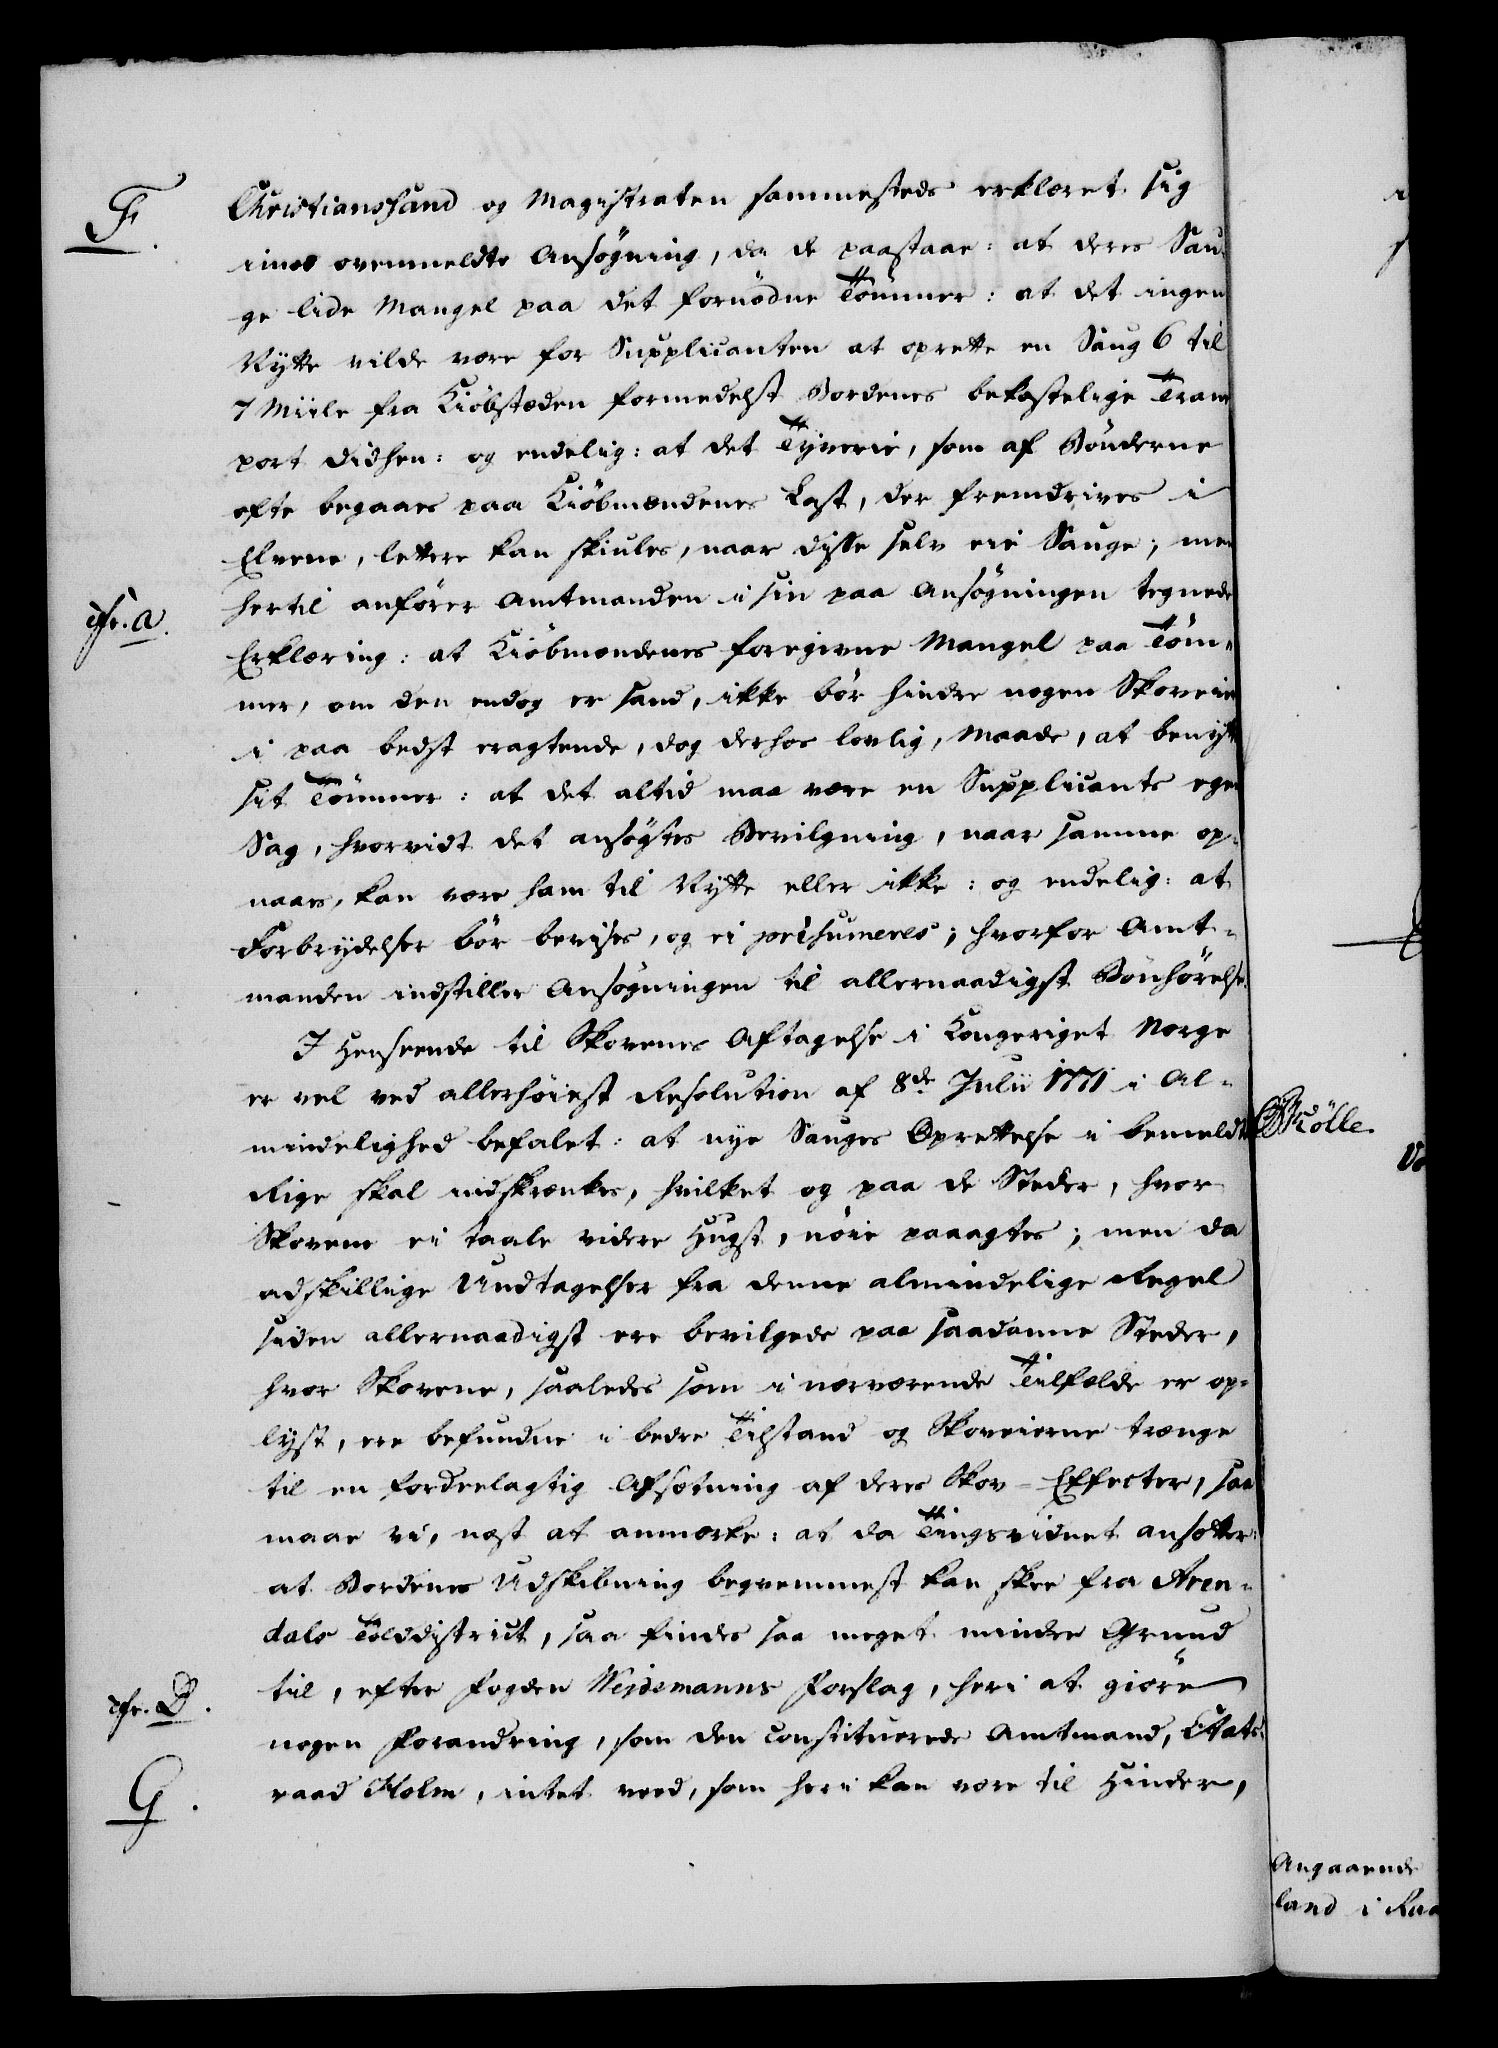 F.
Christianssand og Magistraten sammesteds erklæret sig
imod ovenmeldte Ansøgning, da de paastaae: at deres Sau-
ge lide Mangel paa det fornødne Tømmer: at det ingen
Nytte vilde være for Supplicanten at oprette en Saug 6 til
7 Miile fra Kiöbstæden formedelst Bordenes bekostelige Trans
port didhen: og endelig: at det Tyverie, som af Bönderne
ofte begaaes paa Kiöbmændenes Last, der fremdrives i
Elvene, lettere kan skiules, naar disse selv eie Sauge; men
cfr. a.
hertil anfører Amtmanden i sin paa Ansøgningen tegnede
Erklæring: at Kiöbmændenes foregivne Mangel paa Töm-
mer, om den endog er sand, ikke bör hindre nogen Skoveier
i paa bedst eragtende, dog derhos lovlig, Maade, at benytte
sit Tömmer: at det altid maa være en Supplicants egen
Sag, hvorvidt det ansøgtes Bevilgning, naar samme op-
naaes, kan være ham til Nytte eller ikke: og endelig: at
Forbrydelser bör bevises, og ei præsumeres; hvorfor Amt-
manden indstiller Ansøgningen til allernaadigst Bönhörelse.
I Henseende til Skovenes Aftagelse i Kongeriget Norge
er vel ved allerhöiest Resolution af 8de Julii 1771 i Al-
mindelighed befalet: at nye Sauges Oprettelse i bemeldte
Rige skal indskrænkes, hvilket og paa de Steder, hvor
Skovene ei taale videre Hugst, nöie paaagtes; men da
adskillige Undtagelser fra denne almindelige Regel
siden allernaadigst ere bevilgede paa saadanne Steder,
hvor Skovene, saaledes som i nærværende Tilfælde er op-
lyst, ere befundne i bedre Tilstand og Skoveierne trænge
til en fordeelagtig Afsætning af deres Skov-Effecter, saa
maae vi, næst at anmærke: at da Tingsvidnet ansætter:
at Bordenes Udskibning beqvemmest kan skee fra Aren-
dals Tolddistrict, saa findes saa meget mindre Grund
cfr. D.
til, efter Fogden Weidemanns Forslag, heri at giöre
nogen Forandring, som den constituerede Amtmand, Etats-
G.
raad Holm, intet veed, som heri kan være til Hinder,
Angaaende
land i Raa